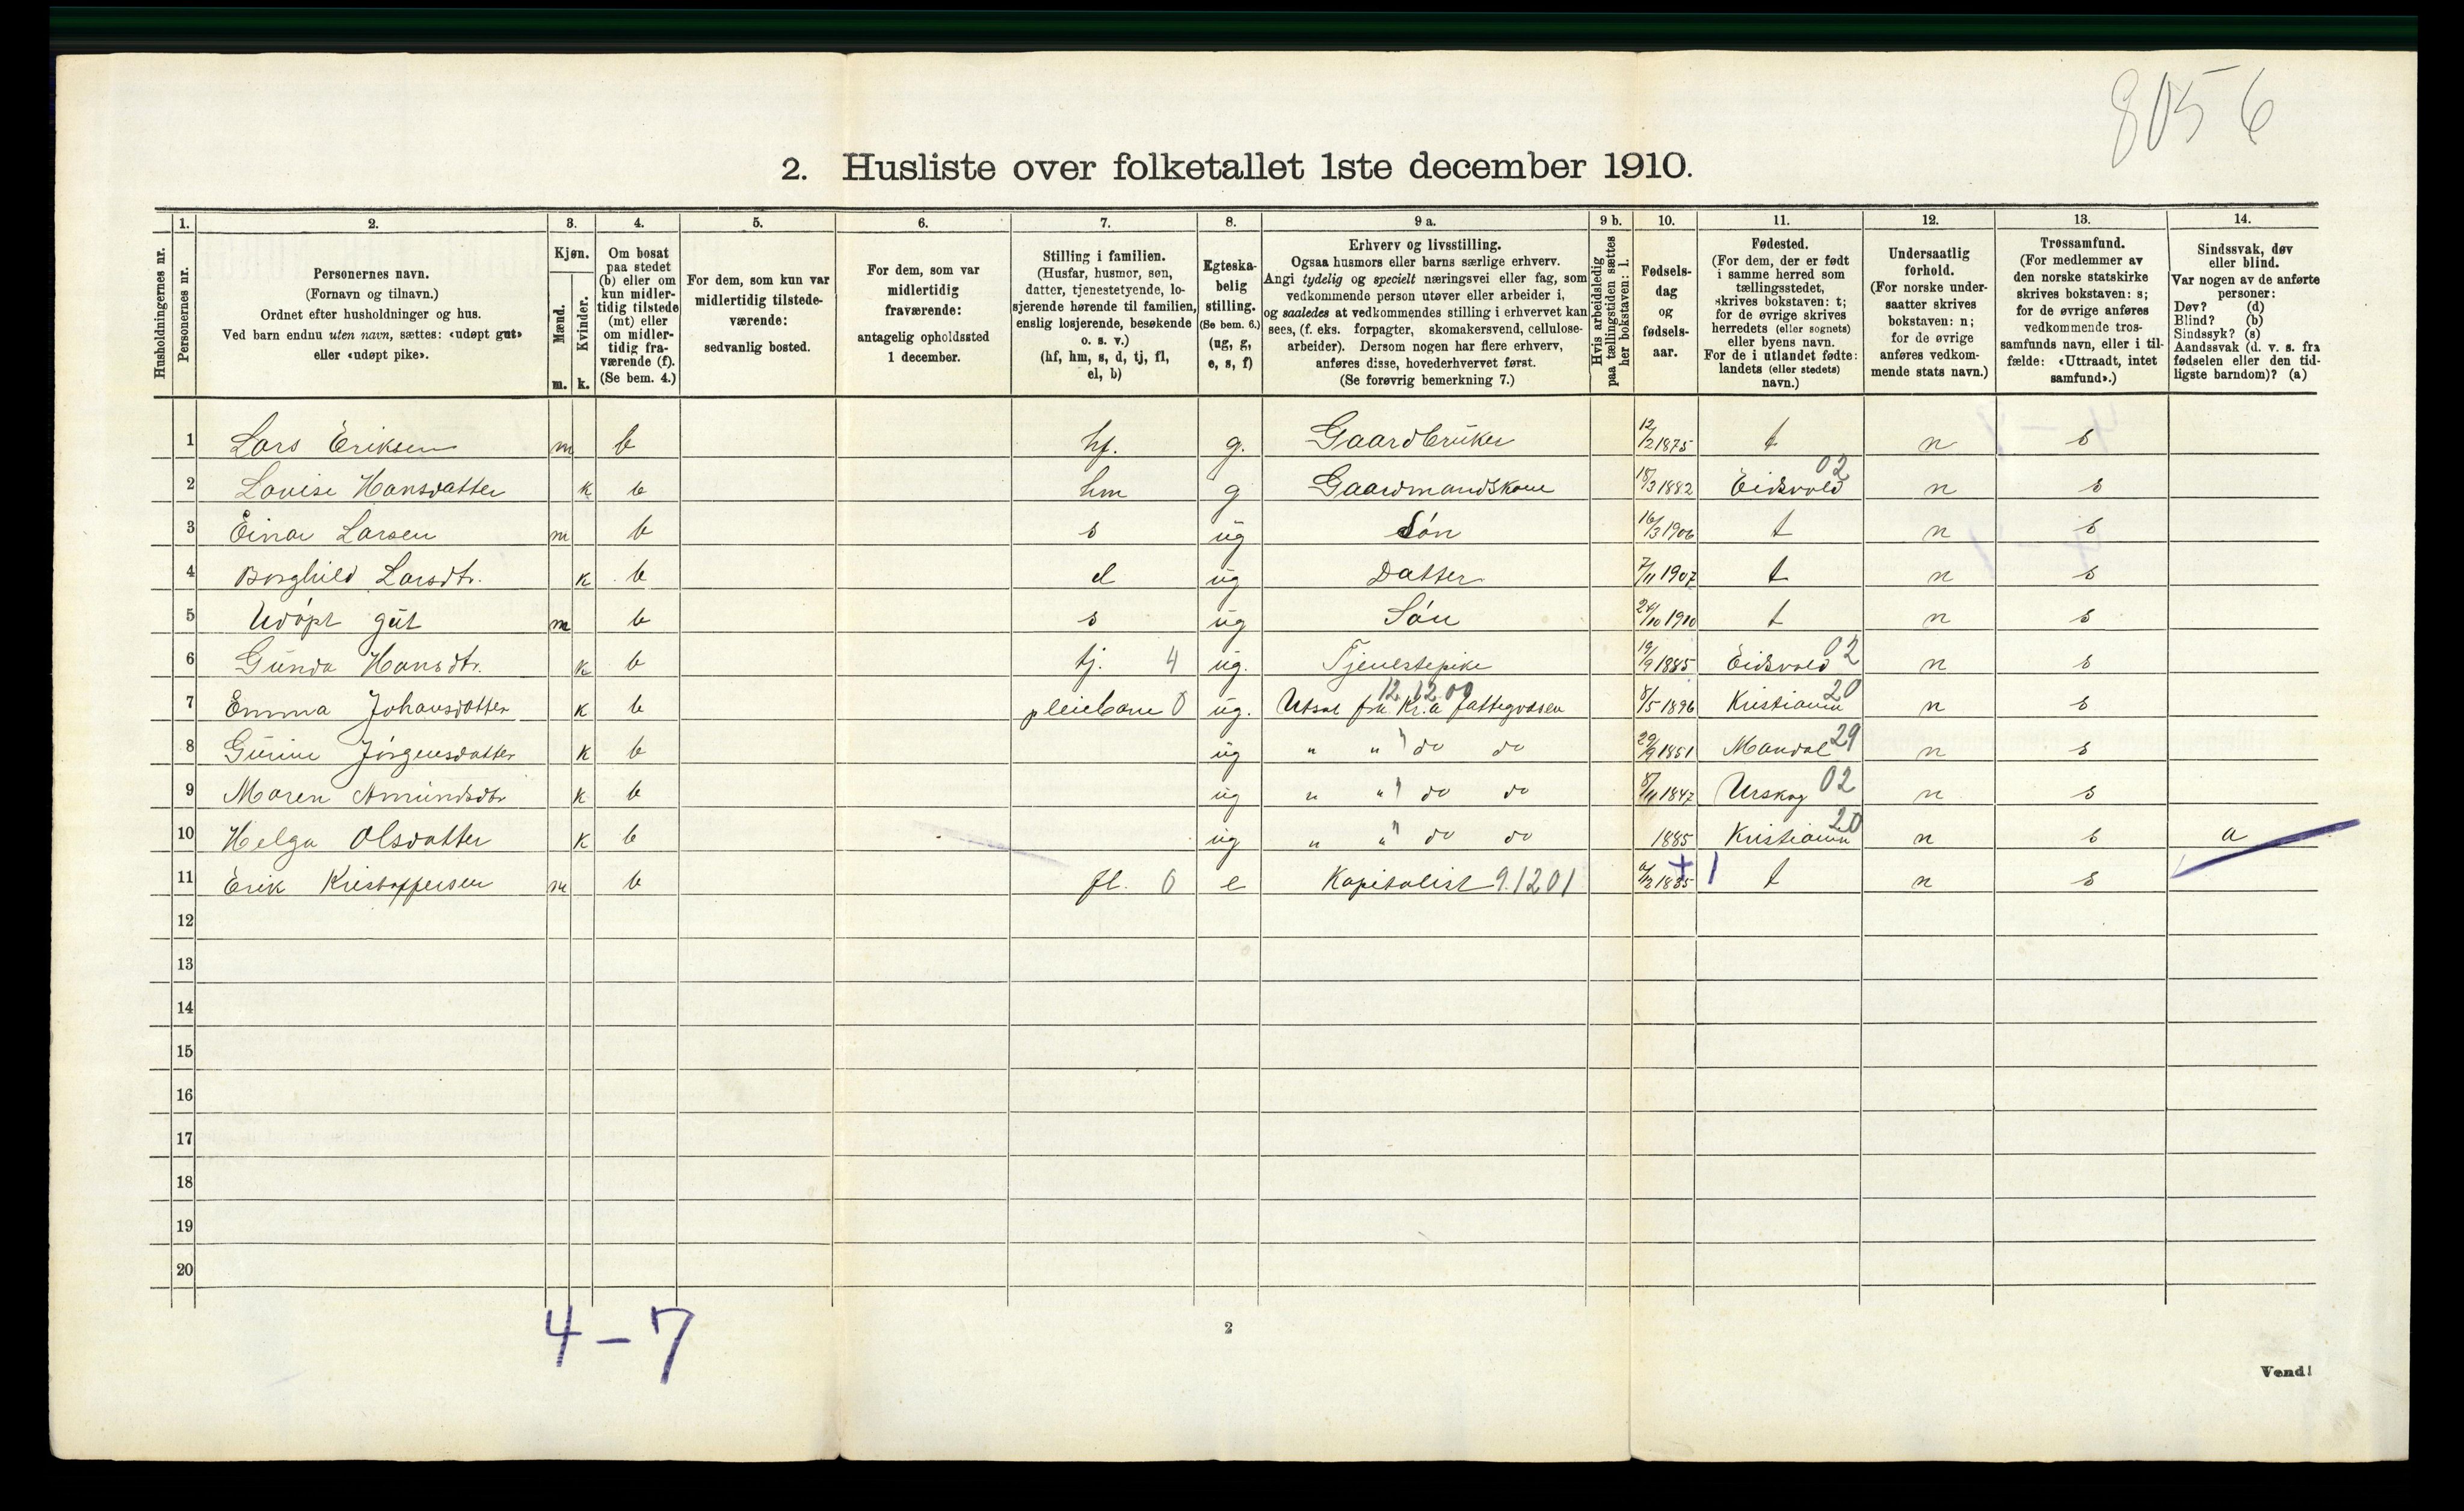 8056
2. Husliste over folketallet 1ste december 1910.
Husholdningernes nr.
1. Personernes nr.
2. Personernes navn.
(Fornavn og tilnavn.)
Ordnet efter husholdninger og hus.
Ved barn endnu uten navn, sættes: «udøpt gut»
eller «udøpt pike».
3. Kjøn.
Mænd. m.
Kvinder. k.
4. Om bosat
paa stedet
(b) eller om
kun midler-
tidig tilstede
(mt) eller
om midler-
tidig fra-
værende (f).
(Se bem. 4.)
5. For dem, som kun var
midlertidig tilstede-
værende:
sedvanlig bosted.
6. For dem, som var
midlertidig
fraværende:
antagelig opholdssted
1 december.
7. Stilling i familien.
(Husfar, husmor, søn,
datter, tjenestetyende, lo-
sjerende hørende til familien,
enslig losjerende, besøkende
o. s. v.)
(hf, hm, s, d, tj, fl,
el, b)
8. Egteska-
belig
stilling.
(Se bem. 6.)
(ug, g,
e, s, f)
9 a. Erhverv og livsstilling.
Ogsaa husmors eller barns særlige erhverv.
Angi tydelig og specielt næringsvei eller fag, som
vedkommende person utøver eller arbeider i,
og saaledes at vedkommendes stilling i erhvervet kan
sees, (f. eks. forpagter, skomakersvend, cellulose-
arbeider). Dersom nogen har flere erhverv,
anføres disse, hovederhvervet først.
(Se forøvrig bemerkning 7.)
9 b. Hvis arbeidsledig
paa tællingstiden sættes
her bokstaven: l.
10. Fødsels-
dag
og
fødsels-
aar.
11. Fødested.
(For dem, der er født
i samme herred som
tællingsstedet,
skrives bokstaven: t;
for de øvrige skrives
herredets (eller sognets)
eller byens navn.
For de i utlandet fødte:
landets (eller stedets)
navn.)
12. Undersaatlig
forhold.
(For norske under-
saatter skrives
bokstaven: n;
for de øvrige
anføres vedkom-
mende stats navn.)
13. Trossamfund.
(For medlemmer av
den norske statskirke
skrives bokstaven: s;
for de øvrige anføres
vedkommende tros-
samfunds navn, eller i til-
fælde: «Uttraadt, intet
samfund».)
14. Sindssvak, døv
eller blind.
Var nogen av de anførte
personer:
Døv? (d)
Blind? (b)
Sindssyk? (s)
Aandssvak (d. v. s. fra
fødselen eller den tid-
ligste barndom)? (a)
1 Lars Eriksen m b hf. g. Gaardbruker 12/2 1875 t n s
2 Lovise Hansdatter k b hm g Gaardmandskone 18/3 1882 Eidsvold 02 n s
3 Einar Larsen m b s ug Søn 16/3 1906 t n s
4 Borghild Larsdtr. k b d ug Datter 7/11 1907 t n s
5 Udøpt gut m b s ug Søn 24/10 1910 t n s
6 Gunda Hansdtr. k b tj. 4 ug. Tjenestepike 19/9 1885 Eidsvold 02 n s
7 Emma Johansdatter k b pleiebarn 0 ug. Utsat fra Kr.a fattigvæsen 12.12.00 8/5 1896 Kristiania 20 n s
8 Gurine Jørgensdatter k b ug " " do do 29/9 1851 Mandal 29 n s
9 Maren Amundsdtr k b ug " " do do 1847 Urskog 02 n s
10 Helga Olsdatter k b ug " " do do 1885 Kristiania 20 n s a
11 Erik Kristoffersen m b fl. 0 e Kapitalist 9.1201 1835 + 1 t n s
12
13
14
15
16
17
18
19
20
4 – 7
2
Vend!